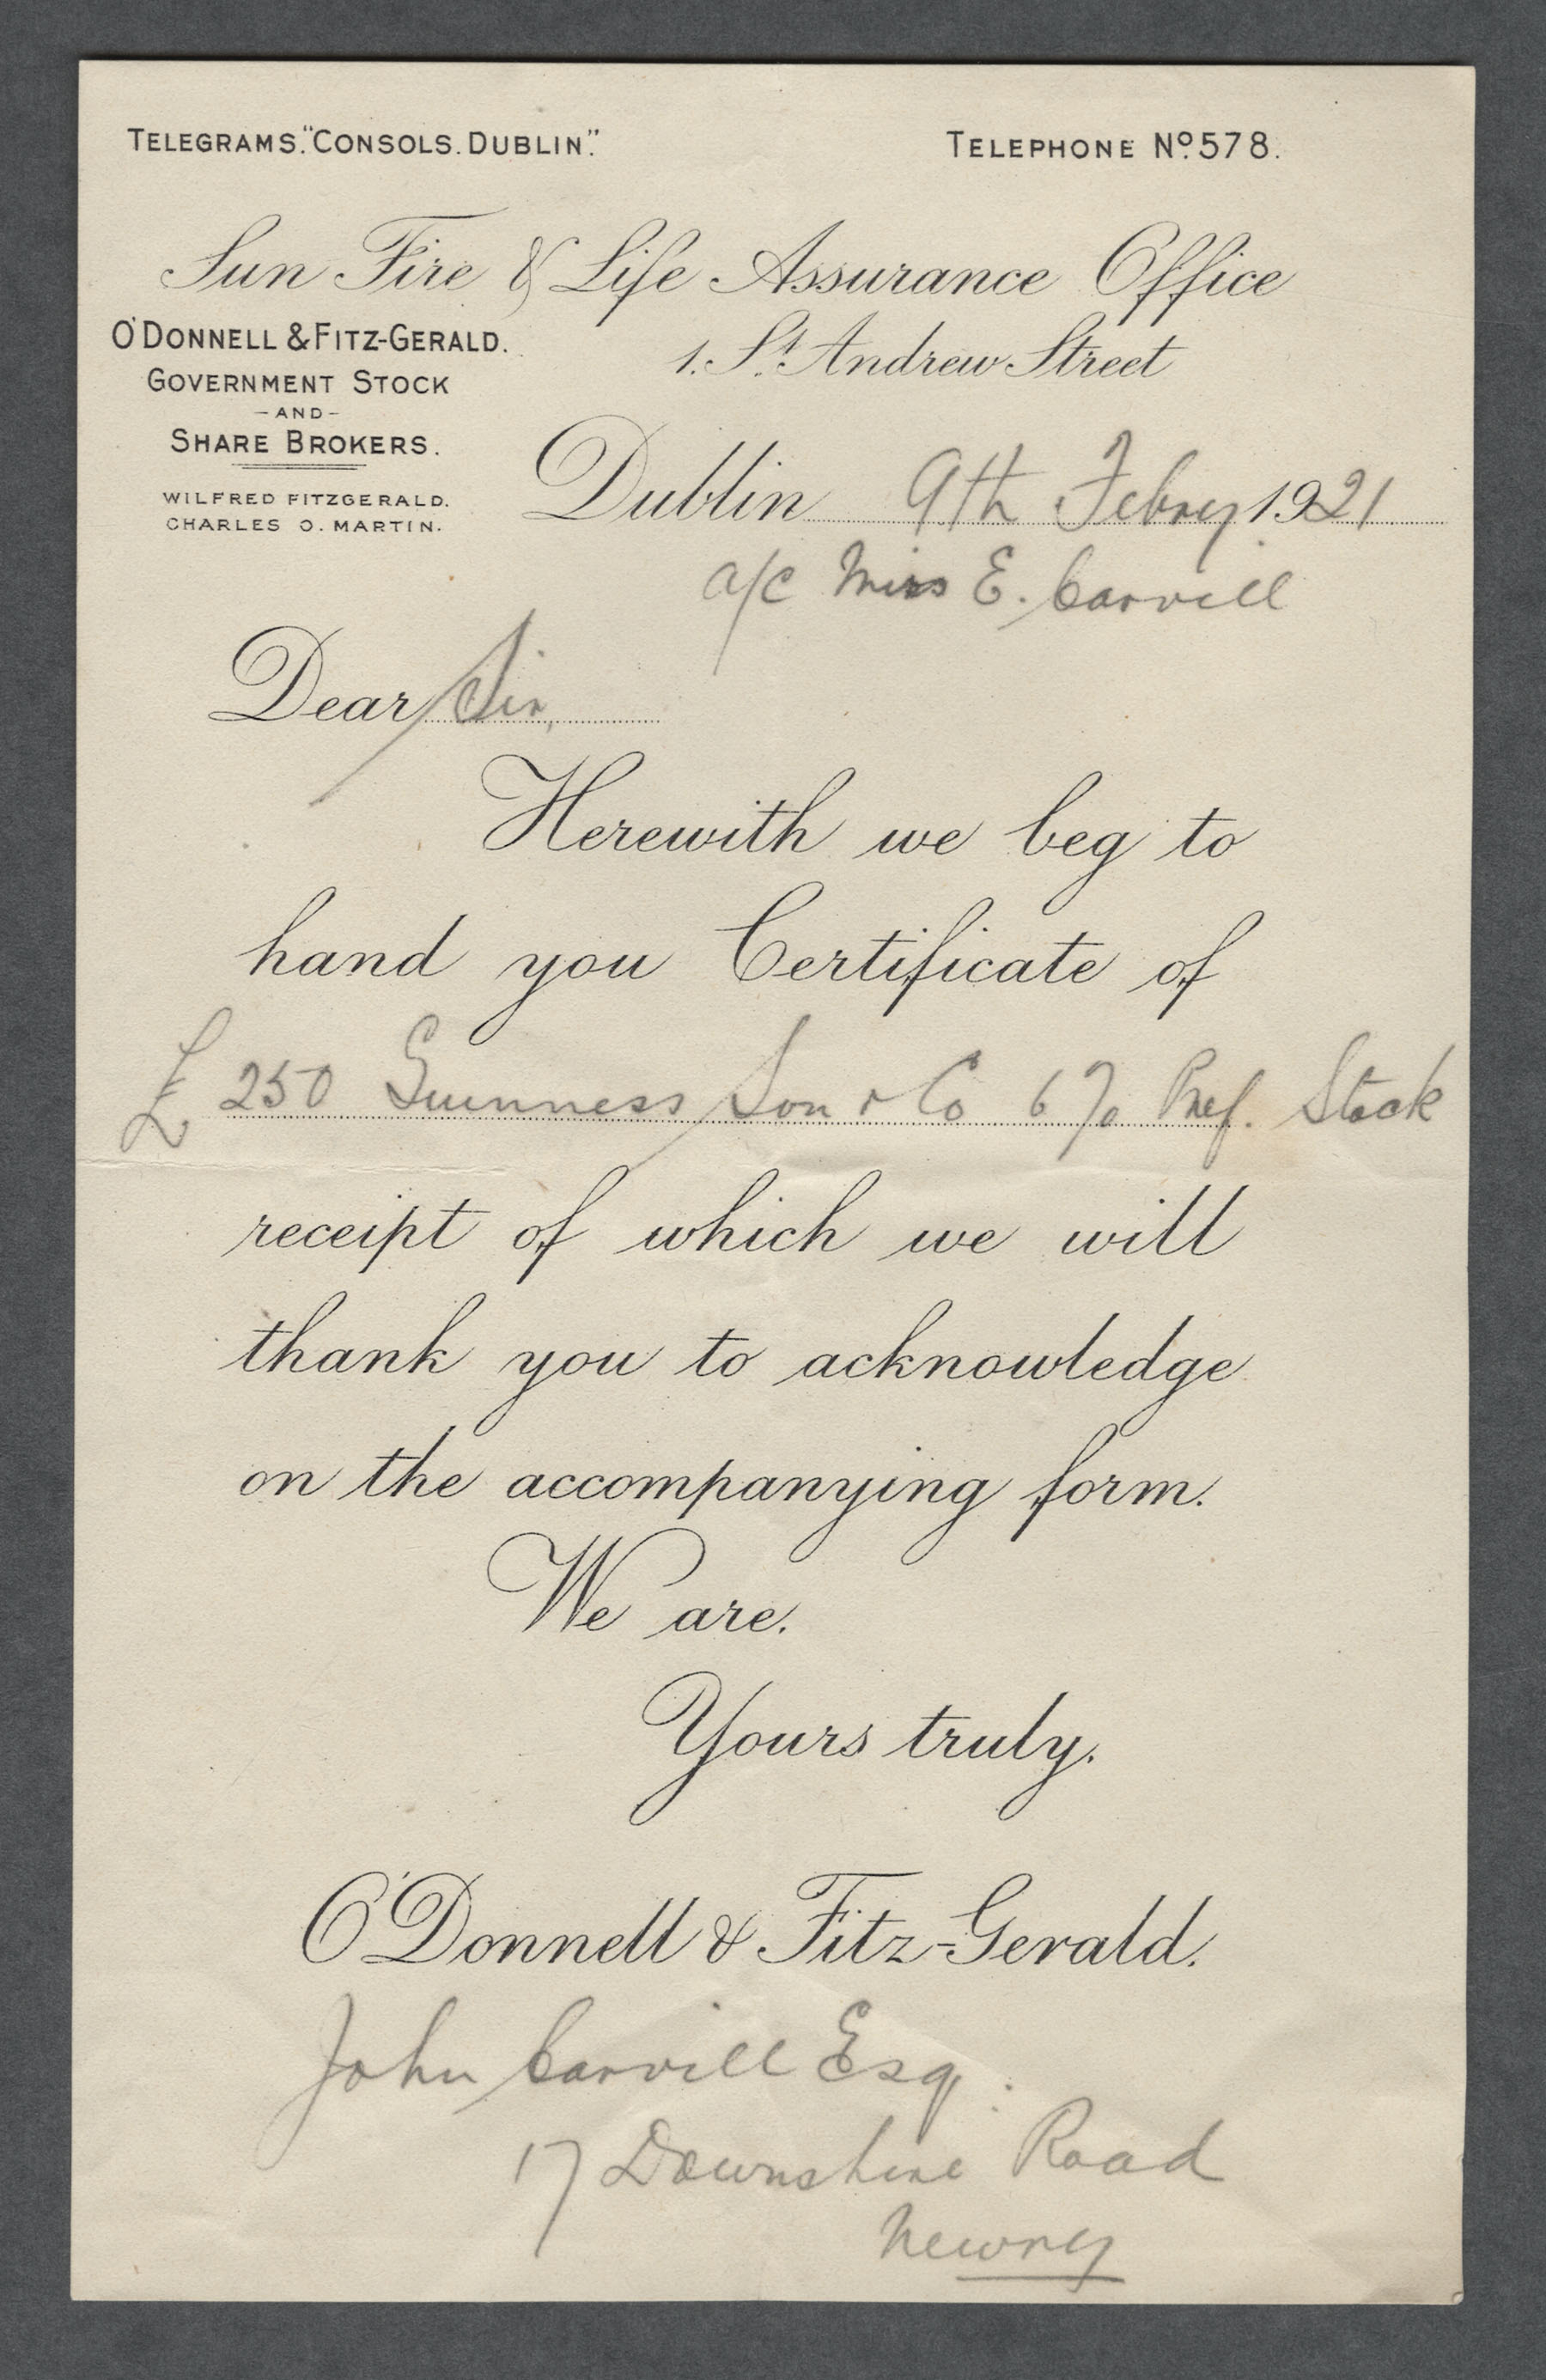 TELEGRAMS. "CONSOLS. DUBLIN."
TELEPHONE No. 578.
Sun Fire & Life Assurance Office
O'DONNELL & FITZ-GERALD.
GOVERNMENT STOCK
- AND -
SHARE BROKERS.
WILFRED FITZGERALD.
CHARLES O. MARTIN.
1. St. Andrew Street
Dublin 9th Febry 1921
a/c Miss E. Carvill
Dear Sir,
Herewith we beg to
hand you Certificate of
£250 Guinness Son & Co 6% Pref. Stock
receipt of which we will
thank you to acknowledge
on the accompanying form.
We are.
Yours truly.
O'Donnell & Fitz-Gerald.
John Carvill Esq.
17 Downshire Road
Newry